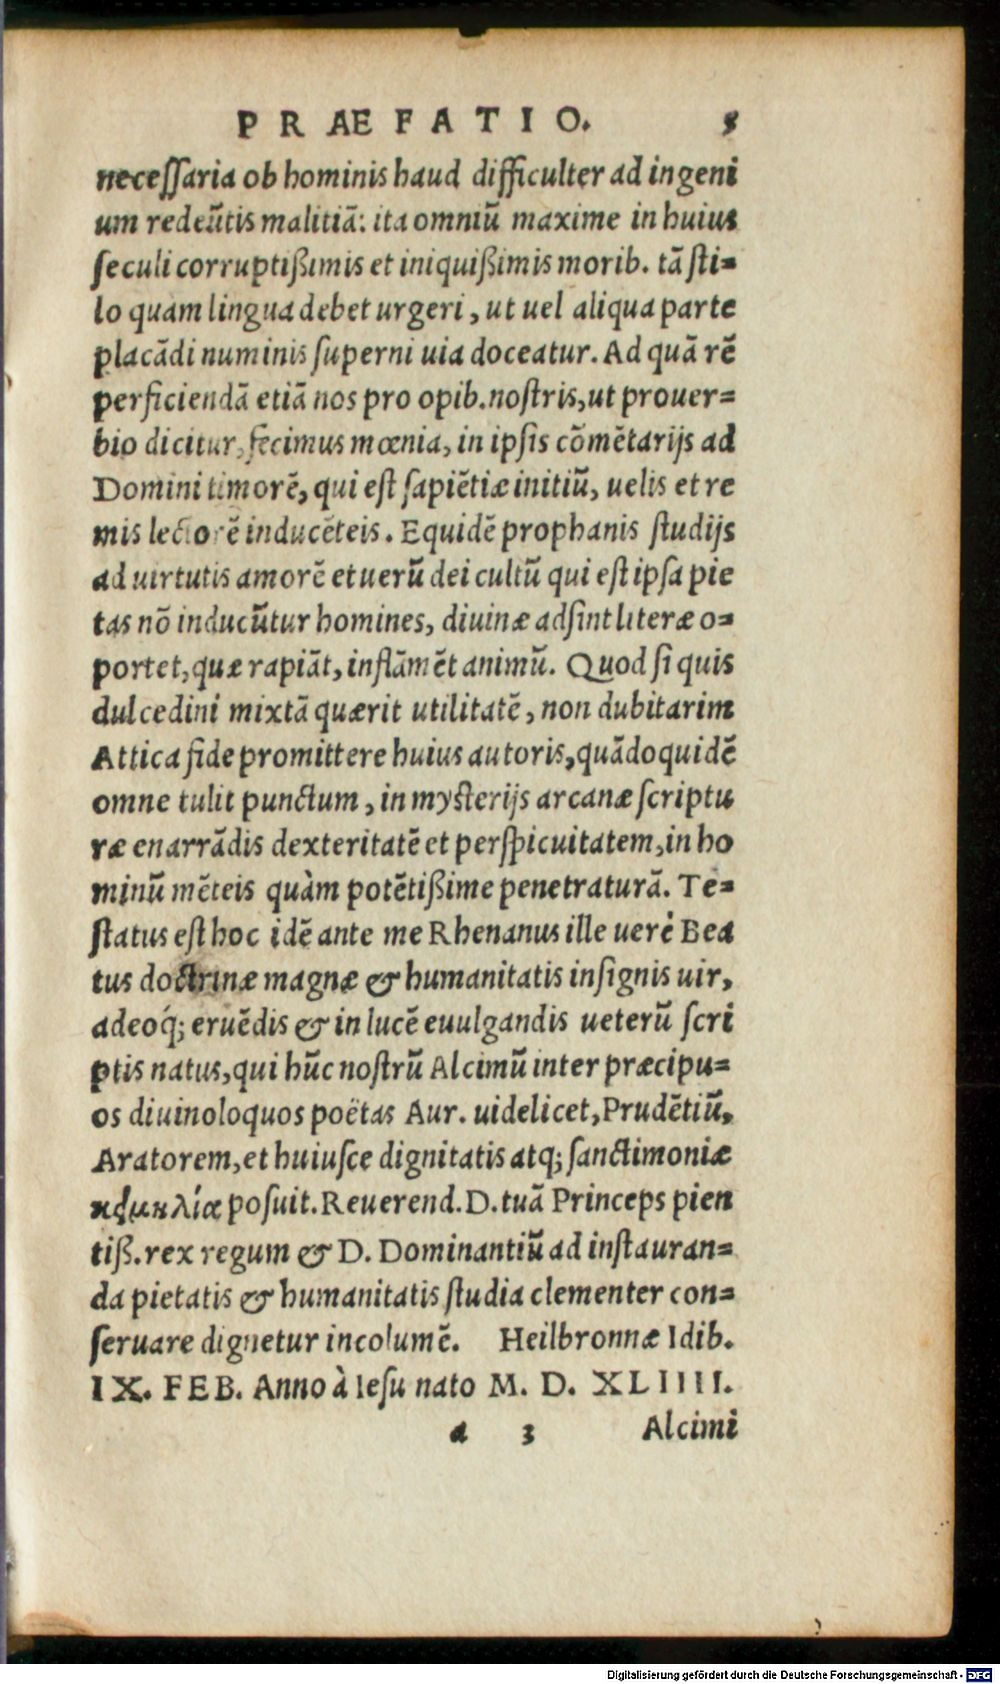 PRAEFATIO. 5
necessaria ob hominis haud difficulter ad ingeni
um redeũtis malitiã: ita omniũ maxime in huius
seculi corruptißimis et iniquißimis morib. tã sti=
lo quam lingua debet urgeri, ut uel aliqua parte
placãdi numinis superni uia doceatur. Ad quã rẽ
perficiendã etiã nos pro opib. nostris, ut prouer=
bio dicitur, fecimus mœnia, in ipsis cõmẽtarijs ad
Domini timorẽ, qui est sapiẽtiæ initiũ, uelis et re
mis lectorẽ inducẽteis. Equidẽ prophanis studijs
ad uirtutis amorẽ et uerũ dei cultũ qui est ipsa pie
tas nõ inducũtur homines, diuinæ adsint literæ o=
portet, quæ rapiãt, inflãmẽt animũ. Quod si quis
dulcedini mixtã quærit utilitatẽ, non dubitarim
Attica fide promittere huius autoris, quãdoquidẽ
omne tulit punctum, in mysterijs arcanæ scriptu
ræ enarrãdis dexteritatẽ et perspicuitatem, in ho
minũ mẽteis quàm potẽtißime penetraturã. Te=
status est hoc idẽ ante me Rhenanus ille uerè Bea
tus doctrinæ magnæ & humanitatis insignis uir,
adeoq́; eruẽdis & in lucẽ euulgandis ueterũ scri
ptis natus, qui hũc nostrũ Alcimũ inter præcipu=
os diuinoloquos poëtas Aur. uidelicet, Prudẽtiũ,
Aratorem, et huiusce dignitatis atq; sanctimoniæ
posuit. Reuerend. D. tuã Princeps pien
tiß. rex regum & D. Dominantiũ ad instauran=
da pietatis & humanitatis studia clementer con=
seruare dignetur incolumẽ. Heilbronnæ Idib.
IX. FEB. Anno à Iesu nato M. D. XLIIII.
a 3 Alcimi
Digitalisierung gefördert durch die Deutsche Forschungsgemeinschaft - DFG